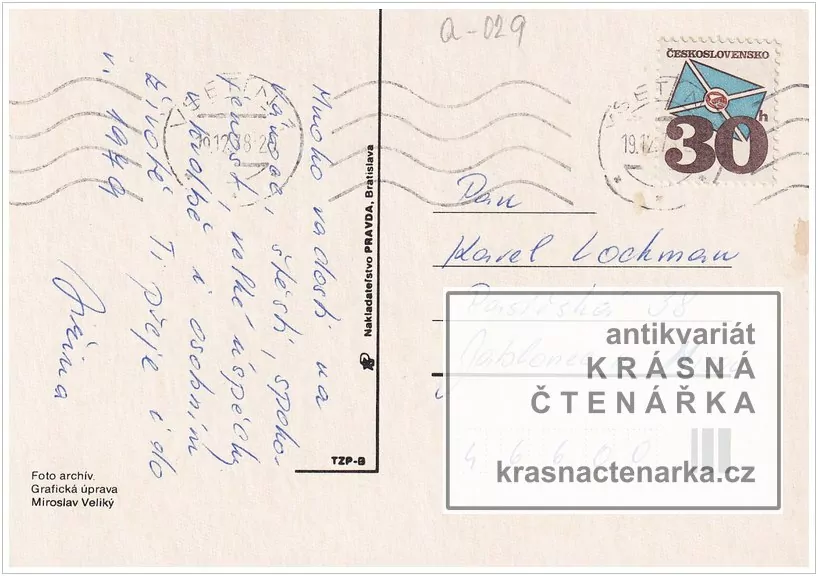 a-029
ČESKOSLOVENSKO
30
h
VSETÍN
19.12.78-2
VSETÍN
19.12.7
Mnoho radosti na
Vánoce, štěstí, spoko-
jenost, velké úspěchy
v tvorbě i osobním
životě Ti přeje i do
r. 1979
Jiřina
Nakladateľstvo PRAVDA, Bratislava
TZP-B
Foto archív.
Grafická úprava
Miroslav Veliký
Pan
Karel Lochman
Pasířská 38
Jablonec n. Nisou
46600
antikvariát
KRÁSNÁ
ČTENÁŘKA
krasnactenarka.cz